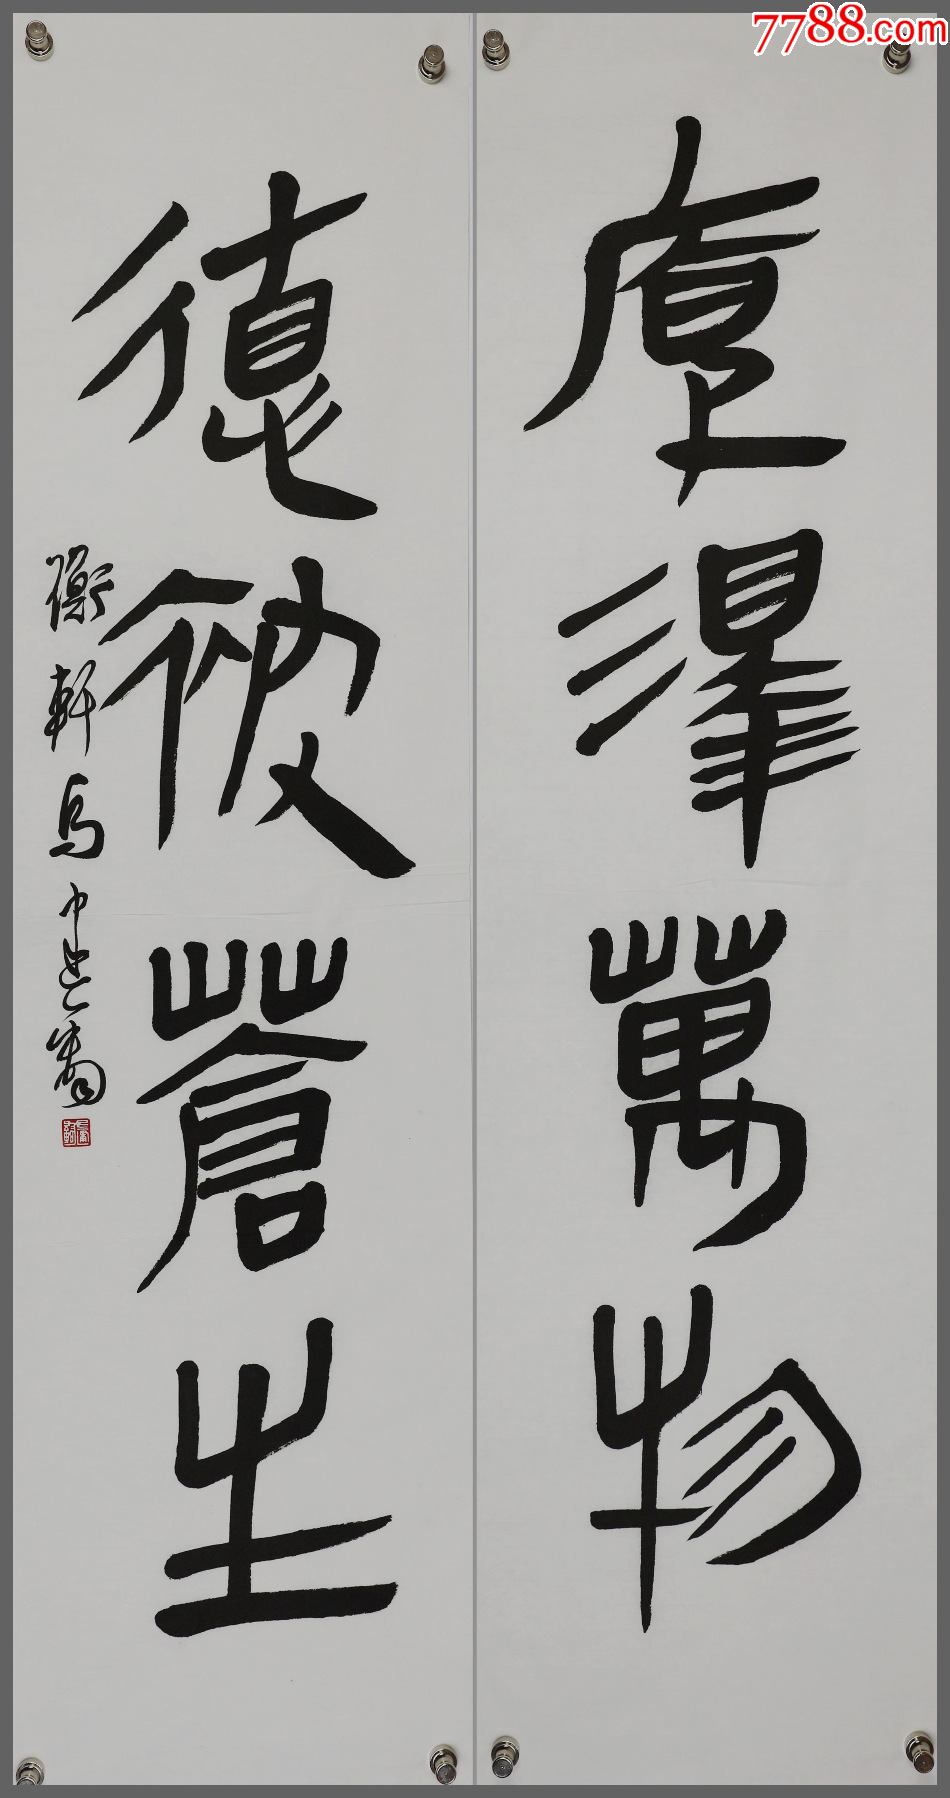 7788.com
厚澤萬物
德被蒼生
衡軒馬中建書